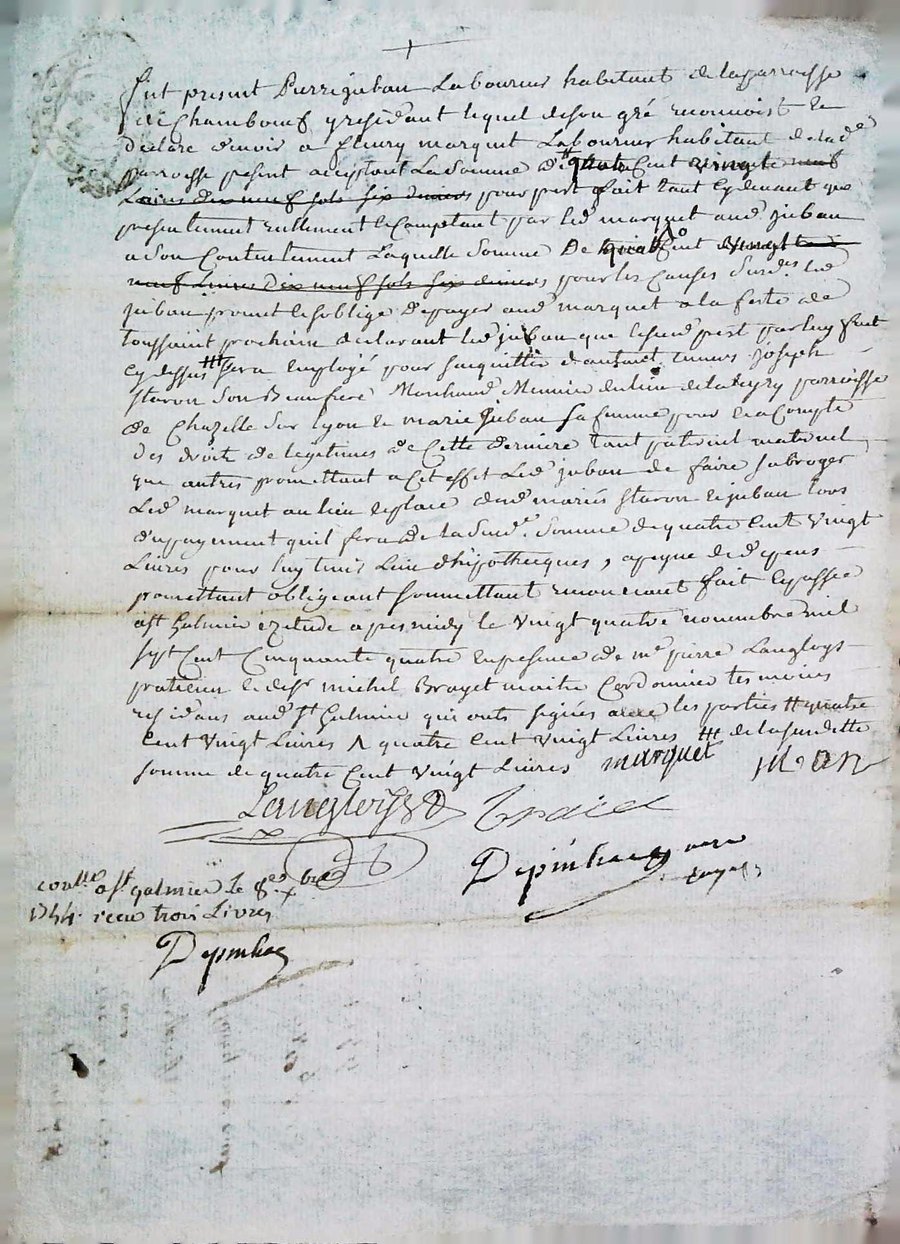 fut present Pierre juban Laboureur habitant de la parroisse
de Chambœuf y residant lequel de son gré reconnoist et
declare devoir a fleury marquet Laboureur habitant de lad.
parroisse present acceptant La somme de quatre Cent vingte neuf
Livres dix neuf sols six deniers pour prest fait tant cy devant que
presentement reellement le comptant par led. marquet aud. juban
a son Contentement Laquelle somme De quatre Cent vingt
neuf Livres Dix neuf sols six deniers pour les causes susd. led.
juban promet et soblige de payer aud. marquet a la feste de
toussaint prochain declarant led. juban que lesud. prest par luy fait
cy dessus sera employé pour sacquitter d'autant envers joseph
staron son Beaufrere Marchand Meunier du lieu de parroisse
de Chazelle sur Lyon et marie juban sa femme pour et a Compte
Des droits de legitimes de Cette derniere tant paternel maternel
que autres promettant a cet effet Led. juban de faire subroger
Led. marquet au lieu et place desd. mariés staron et juban lors
du payement quil fera de la susd. somme de quatre Cent vingt
Livres pour luy tenir Lieu d'hipothecques, a peyne de depens
promettant obligeant soummettant renoncant fait et passé a
a st Galmier etude apres midy le vingt quatre novembre mil
sept Cent Cinquante quatre en presence de me. pierre Langloys
praticien et de sr. michel Brayet maitre Cordonnier temoins
residans aud. st Galmier qui onts signés avec les parties # quatre
Cent vingt Livres Λ quatre Cent vingt Livres ## de la susditte
somme de quatre Cent vingt Livres marquet juban
Langloys
Depinhac nore
royal
a st galmier le 8e. xbre
1754. receu trois Livres
Depinhac